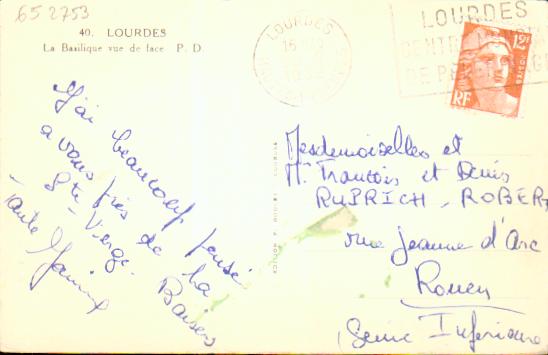 652753
40. LOURDES
La Basilique vue de face P. D
LOURDES
LOURDES
12F
POSTES
RF
J'ai beaucoup pensé
a vous près de la
Ste-Verge.
Baisers
Tante
Mesdemoiselles et
Mr. Francois et Denis
RUPRICH-ROBERT
rue Jeanne d'Arc
Rouen
(Seine Inferieure